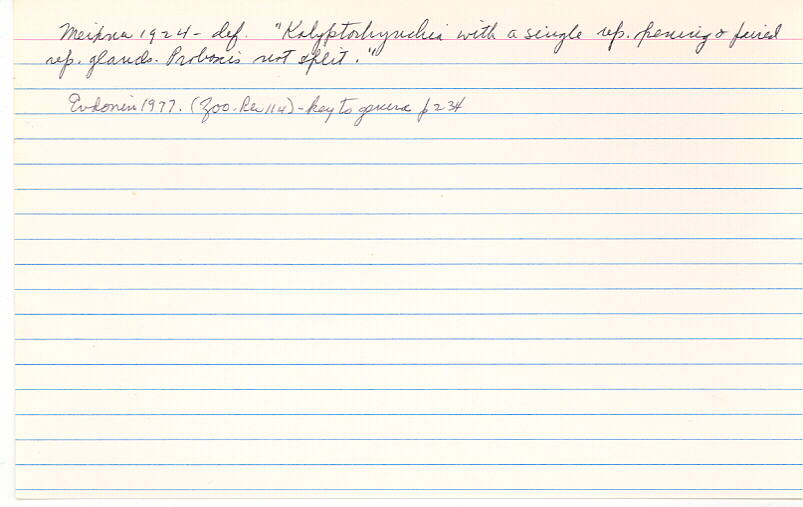 Meixner 1924 - def. "Kalyptorhynchia with a single rep. pening & paired
rep. glands. Proboscis not split."
Evdonin 1977. (Zoo. Rec 114) - key to genera p 234